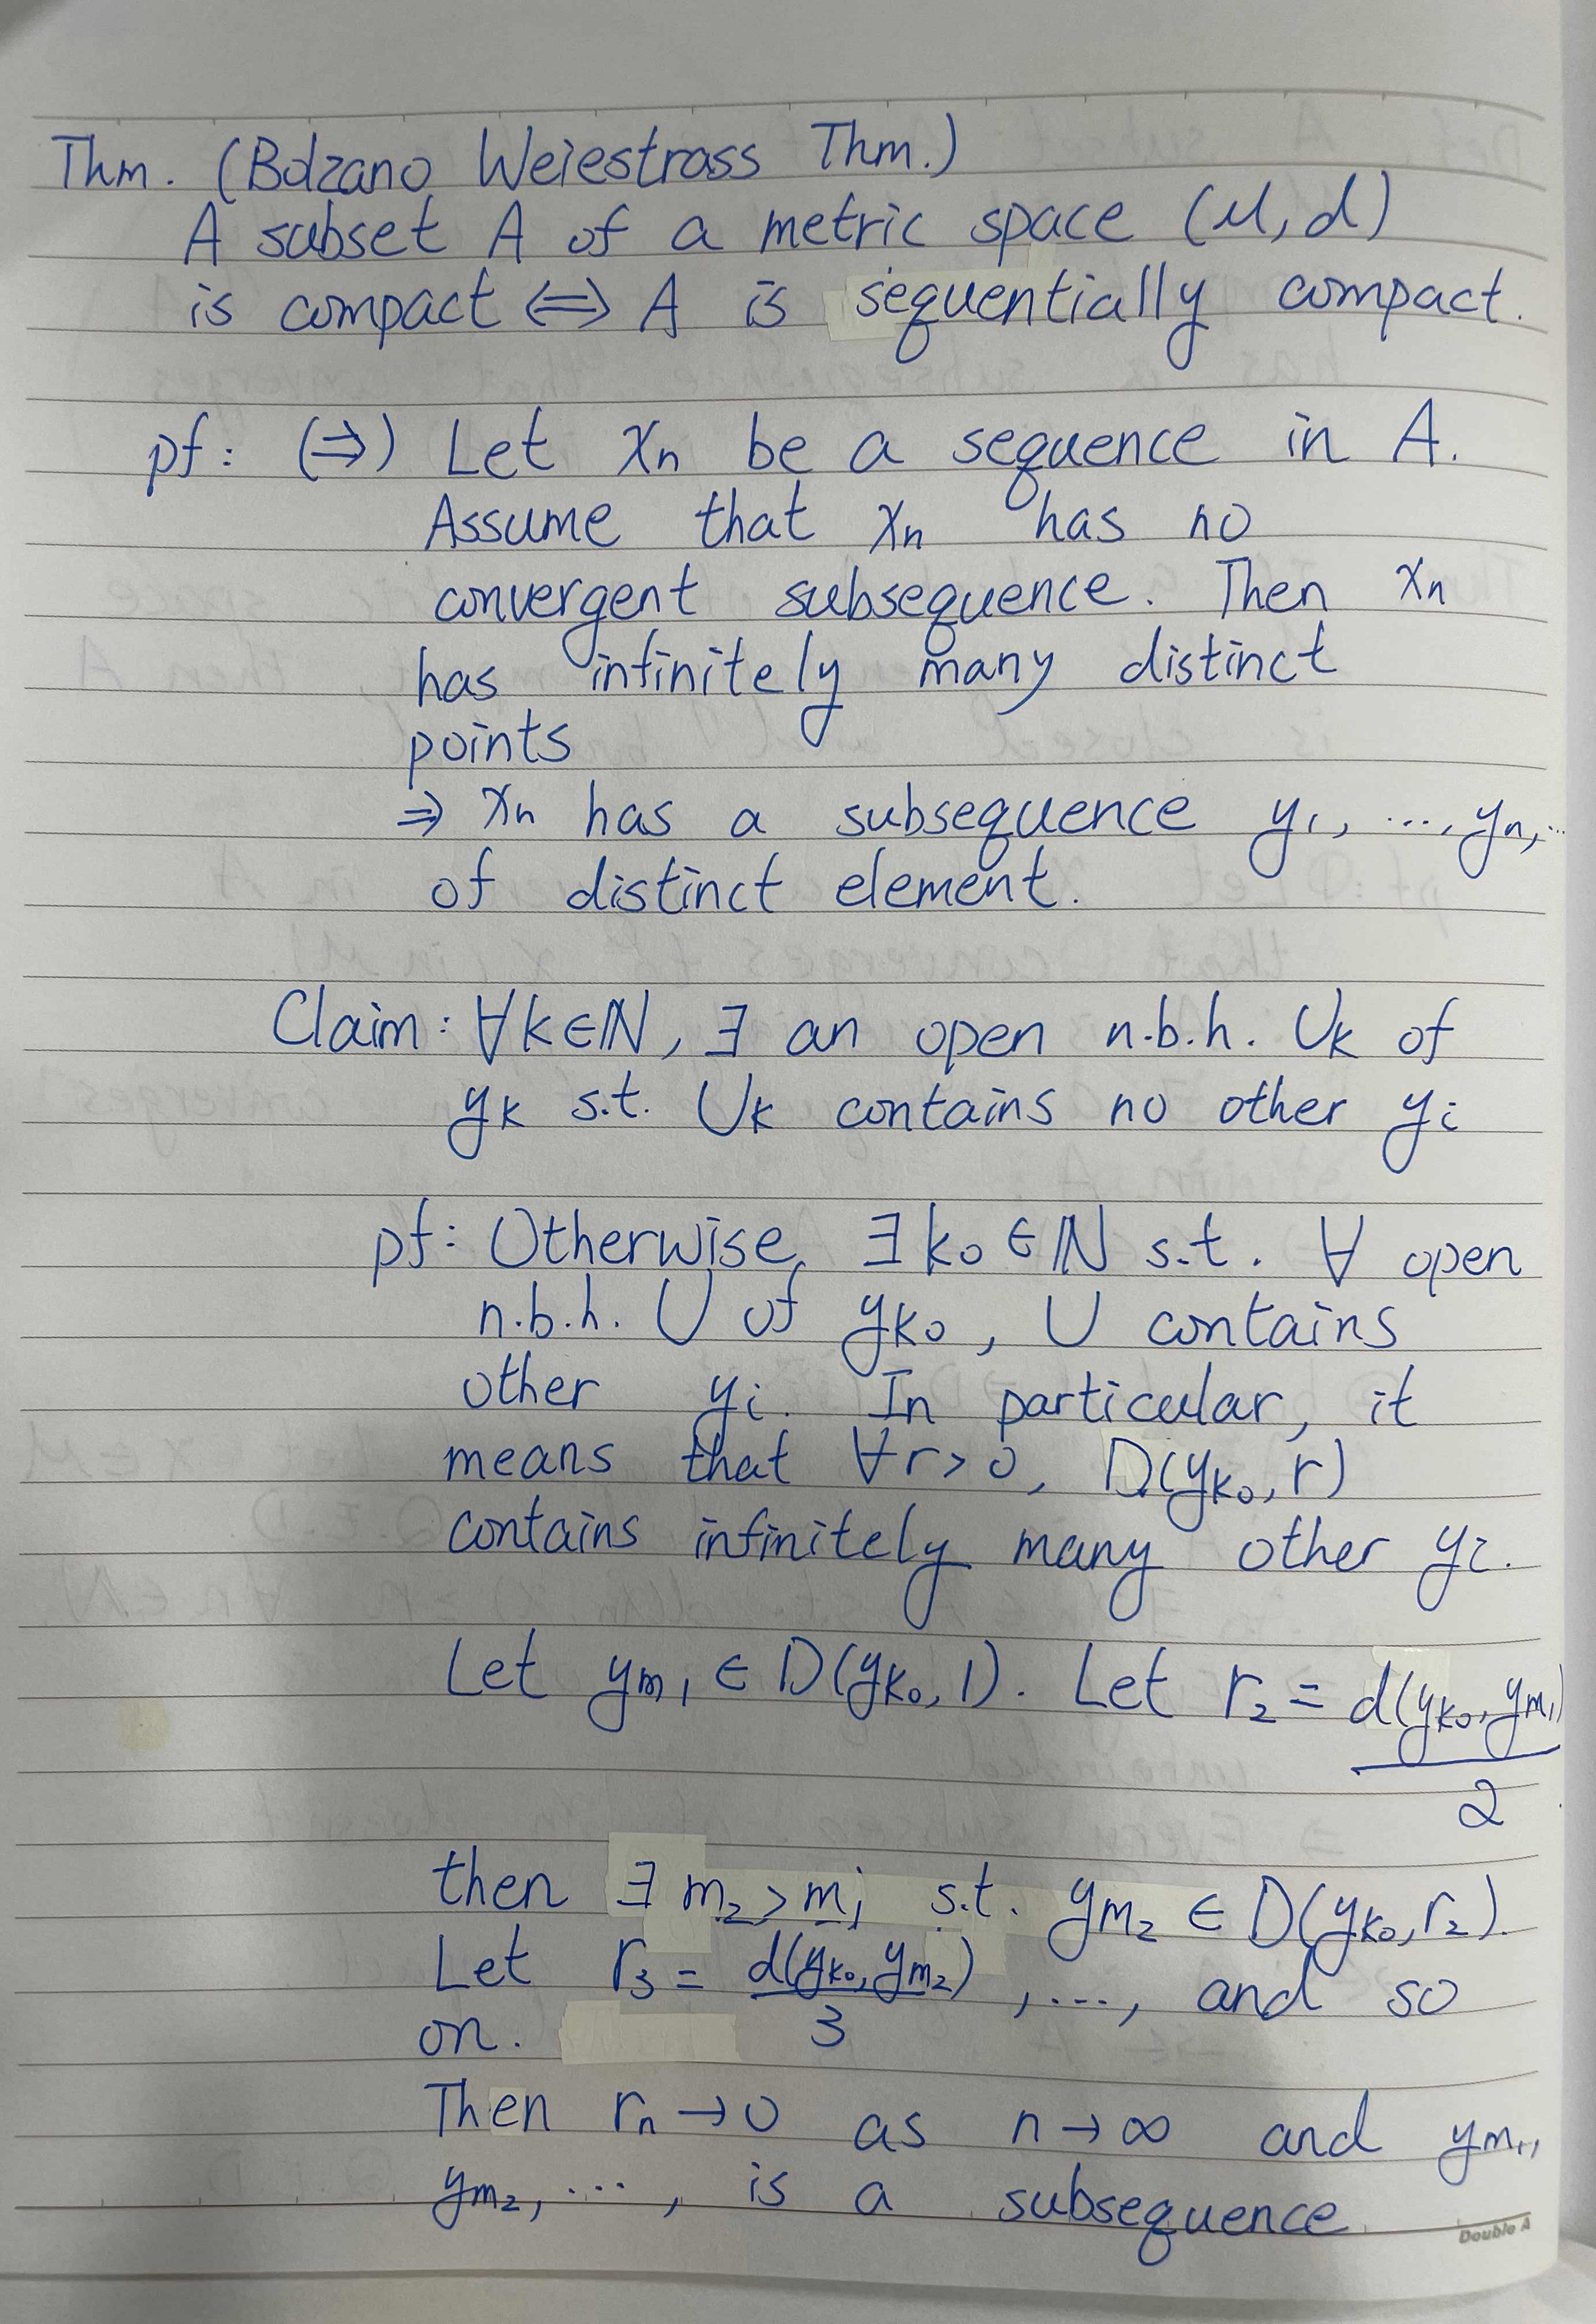 Thm. (Bolzano Weiestrass Thm.)
A subset A of a metric space (M, d)
is compact ⇔ A is sequentially compact.
pf: (⇒) Let xₙ be a sequence in A.
Assume that xₙ has no
convergent subsequence. Then xₙ
has infinitely many distinct
points
⇒ xₙ has a subsequence y₁, ..., yₙ, ...
of distinct element.
Claim: ∀k∈ℕ, ∃ an open n.b.h. Uₖ of
yₖ s.t. Uₖ contains no other yᵢ
pf: Otherwise, ∃k₀∈ℕ s.t. ∀ open
n.b.h. U of y_{k₀}, U contains
other yᵢ. In particular, it
means that ∀r>0, D(y_{k₀}, r)
contains infinitely many other yᵢ.
Let y_{m₁} ∈ D(y_{k₀}, 1). Let r₂ = d(y_{k₀}, y_{m₁})/2
then ∃ m₂ > m₁ s.t. y_{m₂} ∈ D(y_{k₀}, r₂).
Let r₃ = d(y_{k₀}, y_{m₂})/3, ..., and so
on.
Then rₙ → 0 as n → ∞ and y_{m₁},
y_{m₂}, ..., is a subsequence
Double A